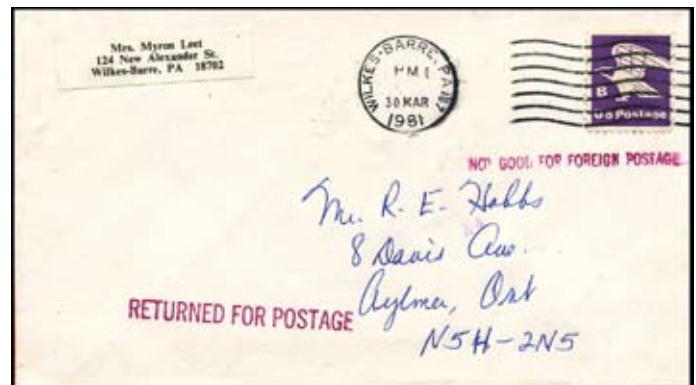 Mrs. Myron Leet
124 New Alexander St.
Wilkes-Barre, PA 18702
WILKES-BARRE, PA 187
PM
30 MAR
1981
B
US Postage
NOT GOOD FOR FOREIGN POSTAGE
Mr. R. E. Hobbs
8 Davis Ave.
Aylmer, Ont
N5H-2N5
RETURNED FOR POSTAGE